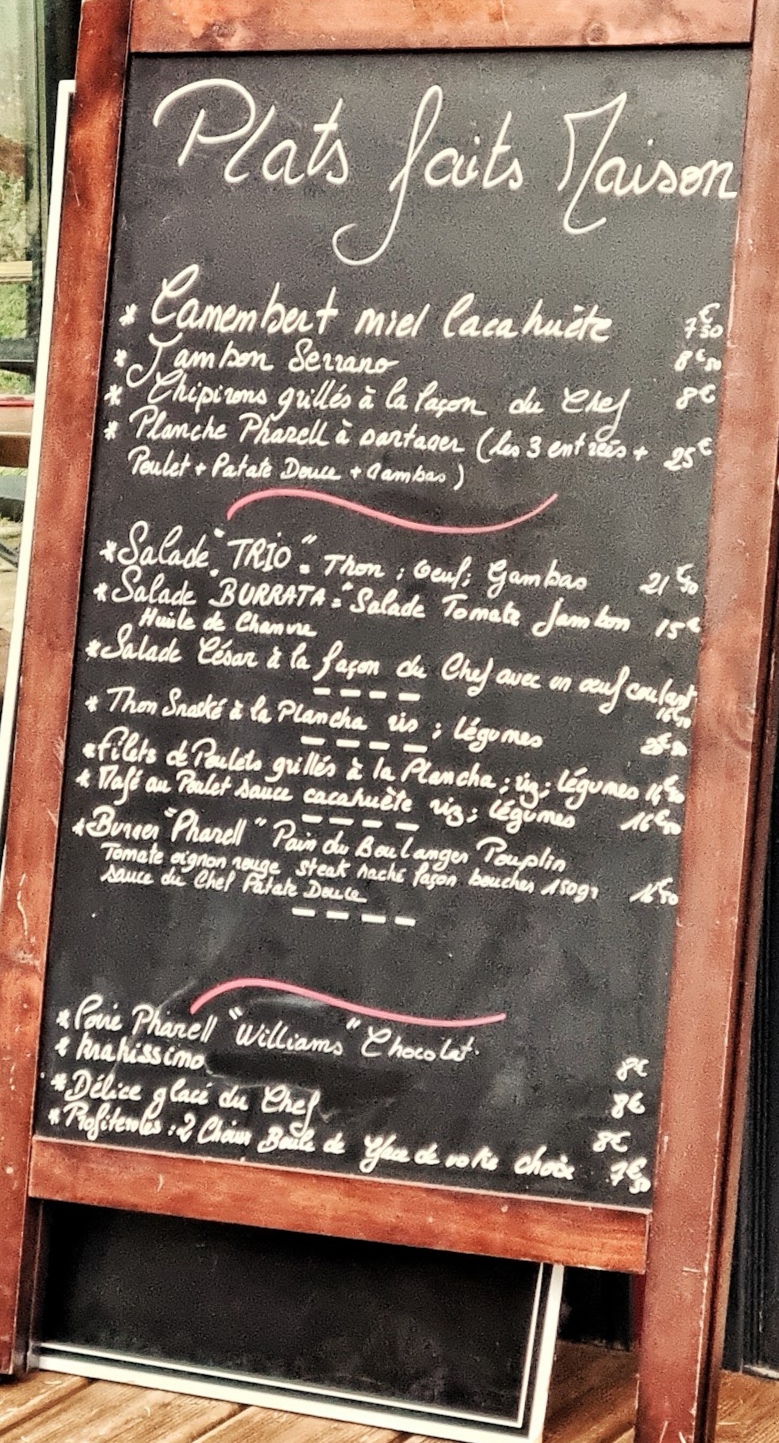 Plats faits Maison
* Camembert miel Cacahuète 7€50
* Jambon Serrano 8€50
* Chipirons grillés à la façon du Chef 8€
* Planche Pharell à partager (les 3 entrées + 25€
Poulet + Patate Douce + Gambas)
* Salade "TRIO" = Thon ; Oeuf ; Gambas 21€50
* Salade "BURRATA =" Salade Tomate Jambon 15€
Huile de Chanvre
* Salade César à la façon du Chef avec un oeuf coulant
16€50
* Thon Snacké à la Plancha ris ; légumes
* Filets de Poulets grillés à la Plancha ; riz ; légumes
* Mafé au Poulet sauce cacahuète riz ; légumes 16€50
* Burger "Pharell" Pain du Boulanger Pouplin
Tomate oignon rouge steak haché façon boucher 150gr
sauce du Chef Patate Douce
* Poire Pharell "Williams" Chocolat.
8€
*
8€
* Délice glacé du Chef
8€
* Profiteroles : 2 Choux Boule de Glace de votre choix 7€50